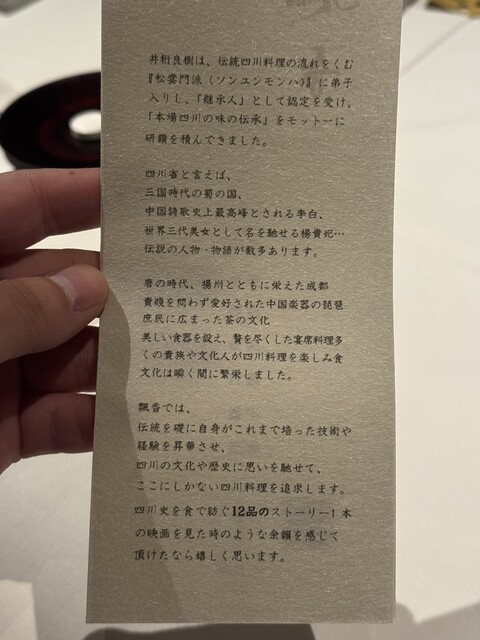 井桁良樹は、伝統四川料理の流れをくむ
『松雲門派（ソンユンモンハ）』に弟子
入りし、「継承人」として認定を受け、
「本場四川の味の伝承」をモットーに
研鑽を積んできました。
四川省と言えば、
三国時代の蜀の国、
中国詩歌史上最高峰とされる李白、
世界三代美女として名を馳せる楊貴妃…
伝説の人物・物語が数多あります。
唐の時代、揚州とともに栄えた成都
貴賤を問わず愛好された中国楽器の琵琶
庶民に広まった茶の文化
美しい食器を設え、贅を尽くした宴席料理多
くの貴族や文化人が四川料理を楽しみ食
文化は瞬く間に繁栄しました。
飄香では、
伝統を礎に自身がこれまで培った技術や
経験を昇華させ、
四川の文化や歴史に思いを馳せて、
ここにしかない四川料理を追求します。
四川史を食で紡ぐ12品のストーリー！本
の映画を見た時のような余韻を感じて
頂けたなら嬉しく思います。